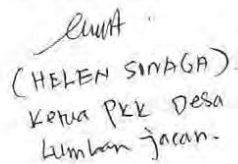 (HELEN SINAGA).
Ketua PKK Desa
Lumban jacan.